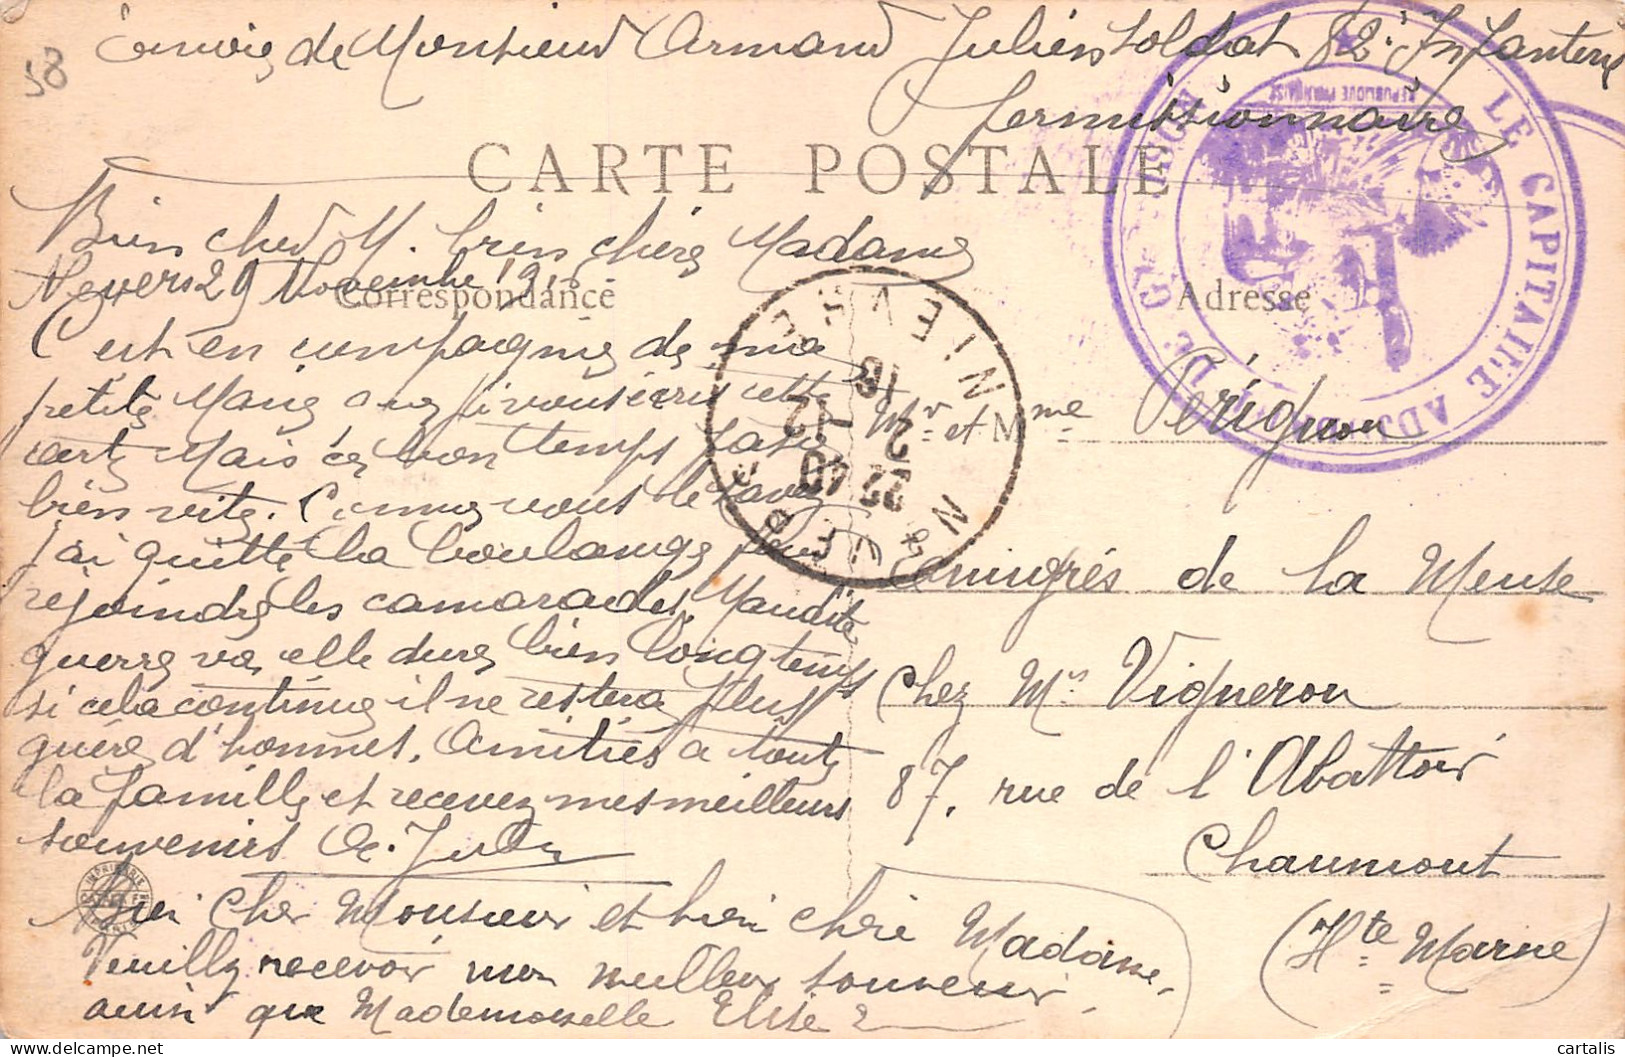 58
Envoie de Monsieur Armand Julien soldat 82e Infanterie
permissionnaire
CARTE POSTALE
Bien cher M. bien chère Madame
Nevers 29 Novembre 191
Correspondance
C'est en compagnie de ma
petite Marie que je vous écris cette
carte Mais ce bon temps passe
bien vite. Comme vous le savez
j'ai quitté la boulange pour
rejoindre les camarades. Maudite
guerre va elle durer bien longtemps
si cela continue il ne restera plus
guère d'hommes. Amitiés a toute
la famille et recevez mes meilleurs
souvenirs A. Julien
Bien Cher Monsieur et bien chère Madame
Veuillez recevoir mon meilleur souvenir
ainsi que Mademoiselle Elise
Adresse
Mr et Mme Pérignon
émigrés de la Meuse
chez Mr Vigneron
87, rue de l'Abattoir
Chaumont
(Hte Marne)
LE CAPITAINE ADJ
REPUBLIQUE FRANÇAISE
NIEVRE
22 40
2 - 12
18
IMPRIMERIE
cartalis
delcampe.net